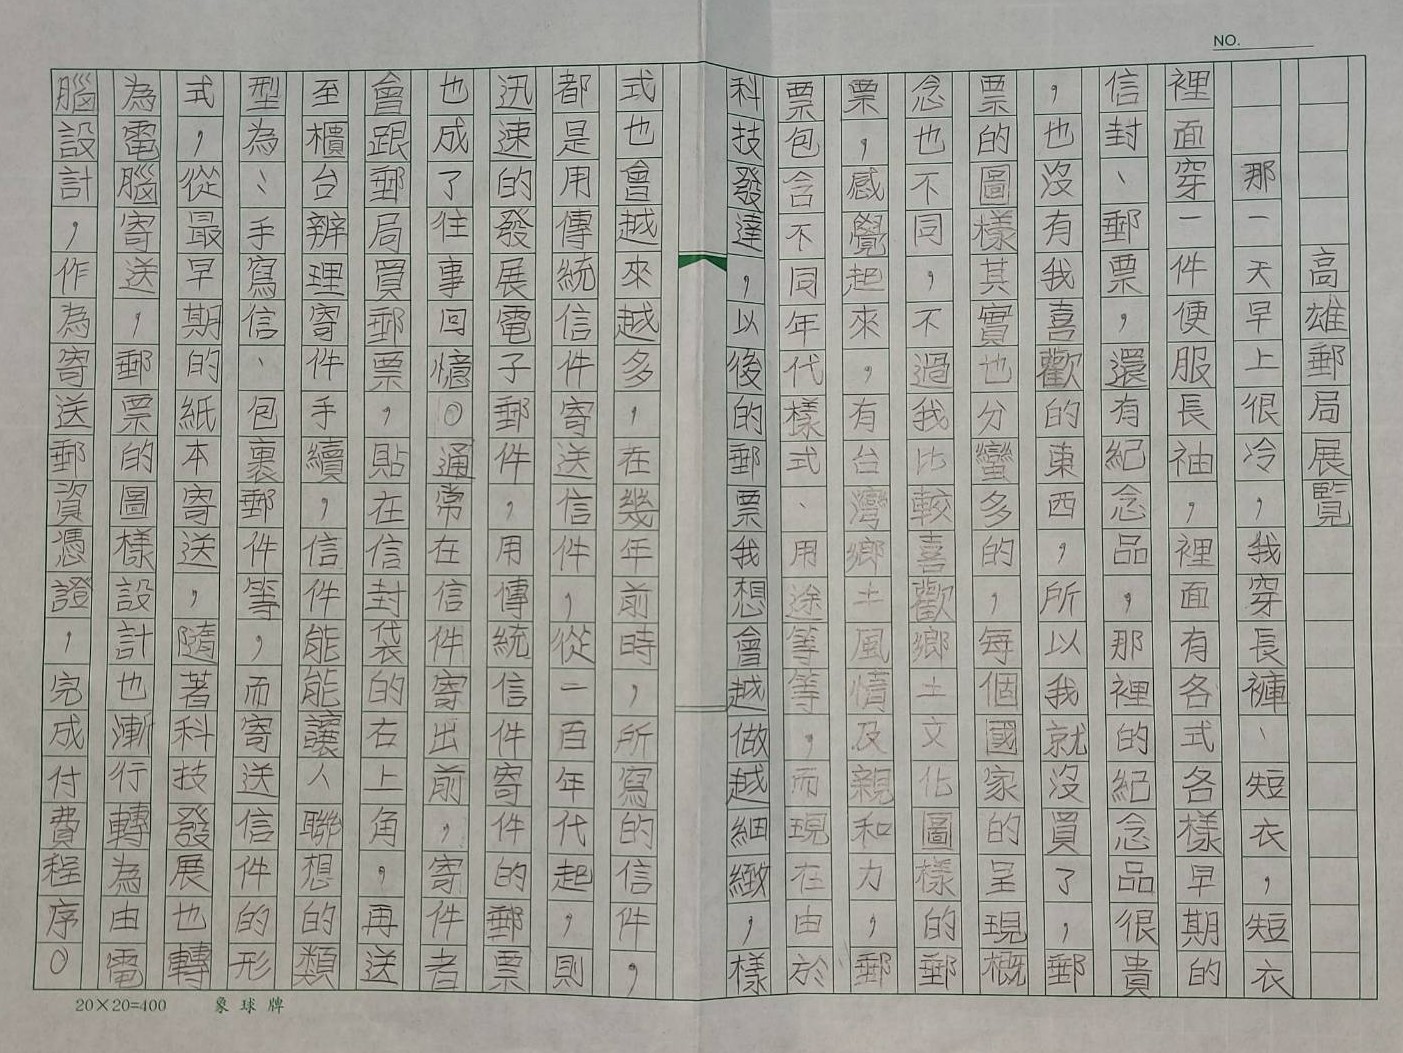 NO.
高雄郵局展覽
那一天早上很冷，我穿長褲、短衣，短衣
裡面穿一件便服長袖，裡面有各式各樣早期的
信封、郵票，還有紀念品，那裡的紀念品很貴
，也沒有我喜歡的東西，所以我就沒買了，郵
票的圖樣其實也分蠻多的，每個國家的呈現概
念也不同，不過我比較喜歡鄉土文化圖樣的郵
票，感覺起來，有台灣鄉土風情及親和力，郵
票包含不同年代樣式、用途等等，而現在由於
科技發達，以後的郵票我想會越做越細緻，樣
式也會越來越多，在幾年前時，所寫的信件，
都是用傳統信件寄送信件，從一百年代起，則
迅速的發展電子郵件，用傳統信件寄件的郵票
也成了往事回憶。通常在信件寄出前，寄件者
會跟郵局買郵票，貼在信封袋的右上角，再送
至櫃台辦理寄件手續，信件能能讓人聯想的類
型為、手寫信、包裹郵件等，而寄送信件的形
式，從最早期的紙本寄送，隨著科技發展也轉
為電腦寄送，郵票的圖樣設計也漸行轉為由電
腦設計，作為寄送郵資憑證，完成付費程序。
20×20=400 象球牌